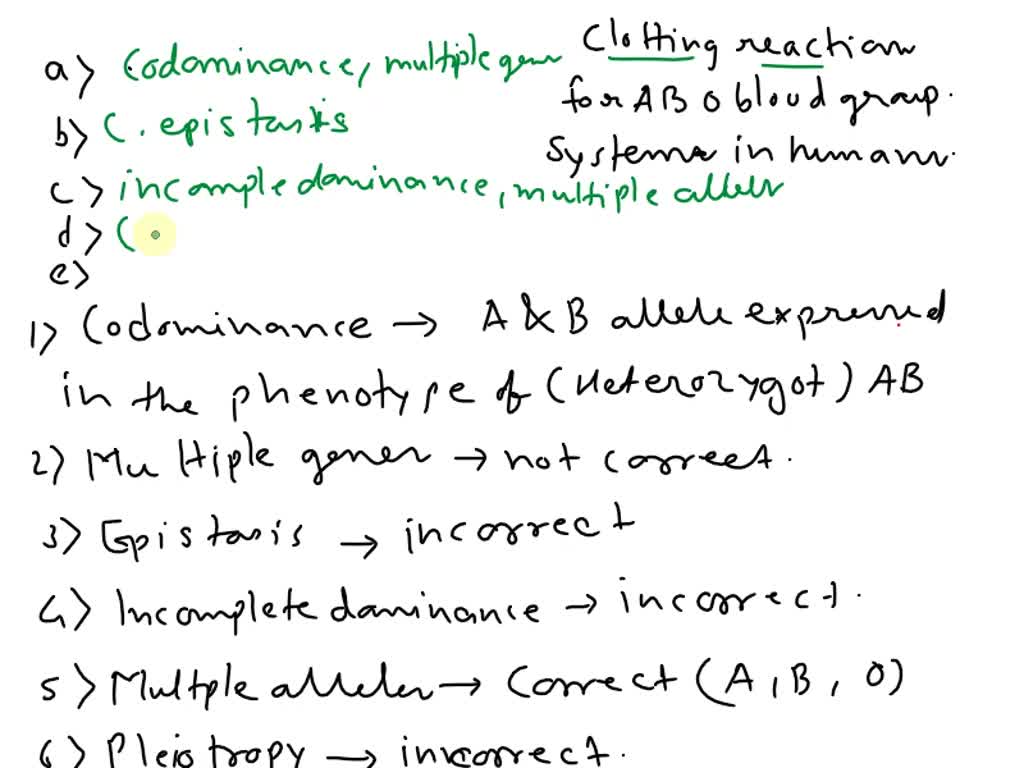 a) Codominance, multiple gene
Clotting reaction
for ABO blood group.
Systems in humans.
b) C. epistasis
c) incomple dominance, multiple alleles
d) C
e)
1) Codominance → A & B allele expressed
in the phenotype of (Heterozygot) AB
2) Multiple genes → not correct.
3) Epistasis → incorrect
4) Incomplete dominance → incorrect.
5) Multple alleles → correct (A, B, O)
6) Pleiotropy → incorrect.